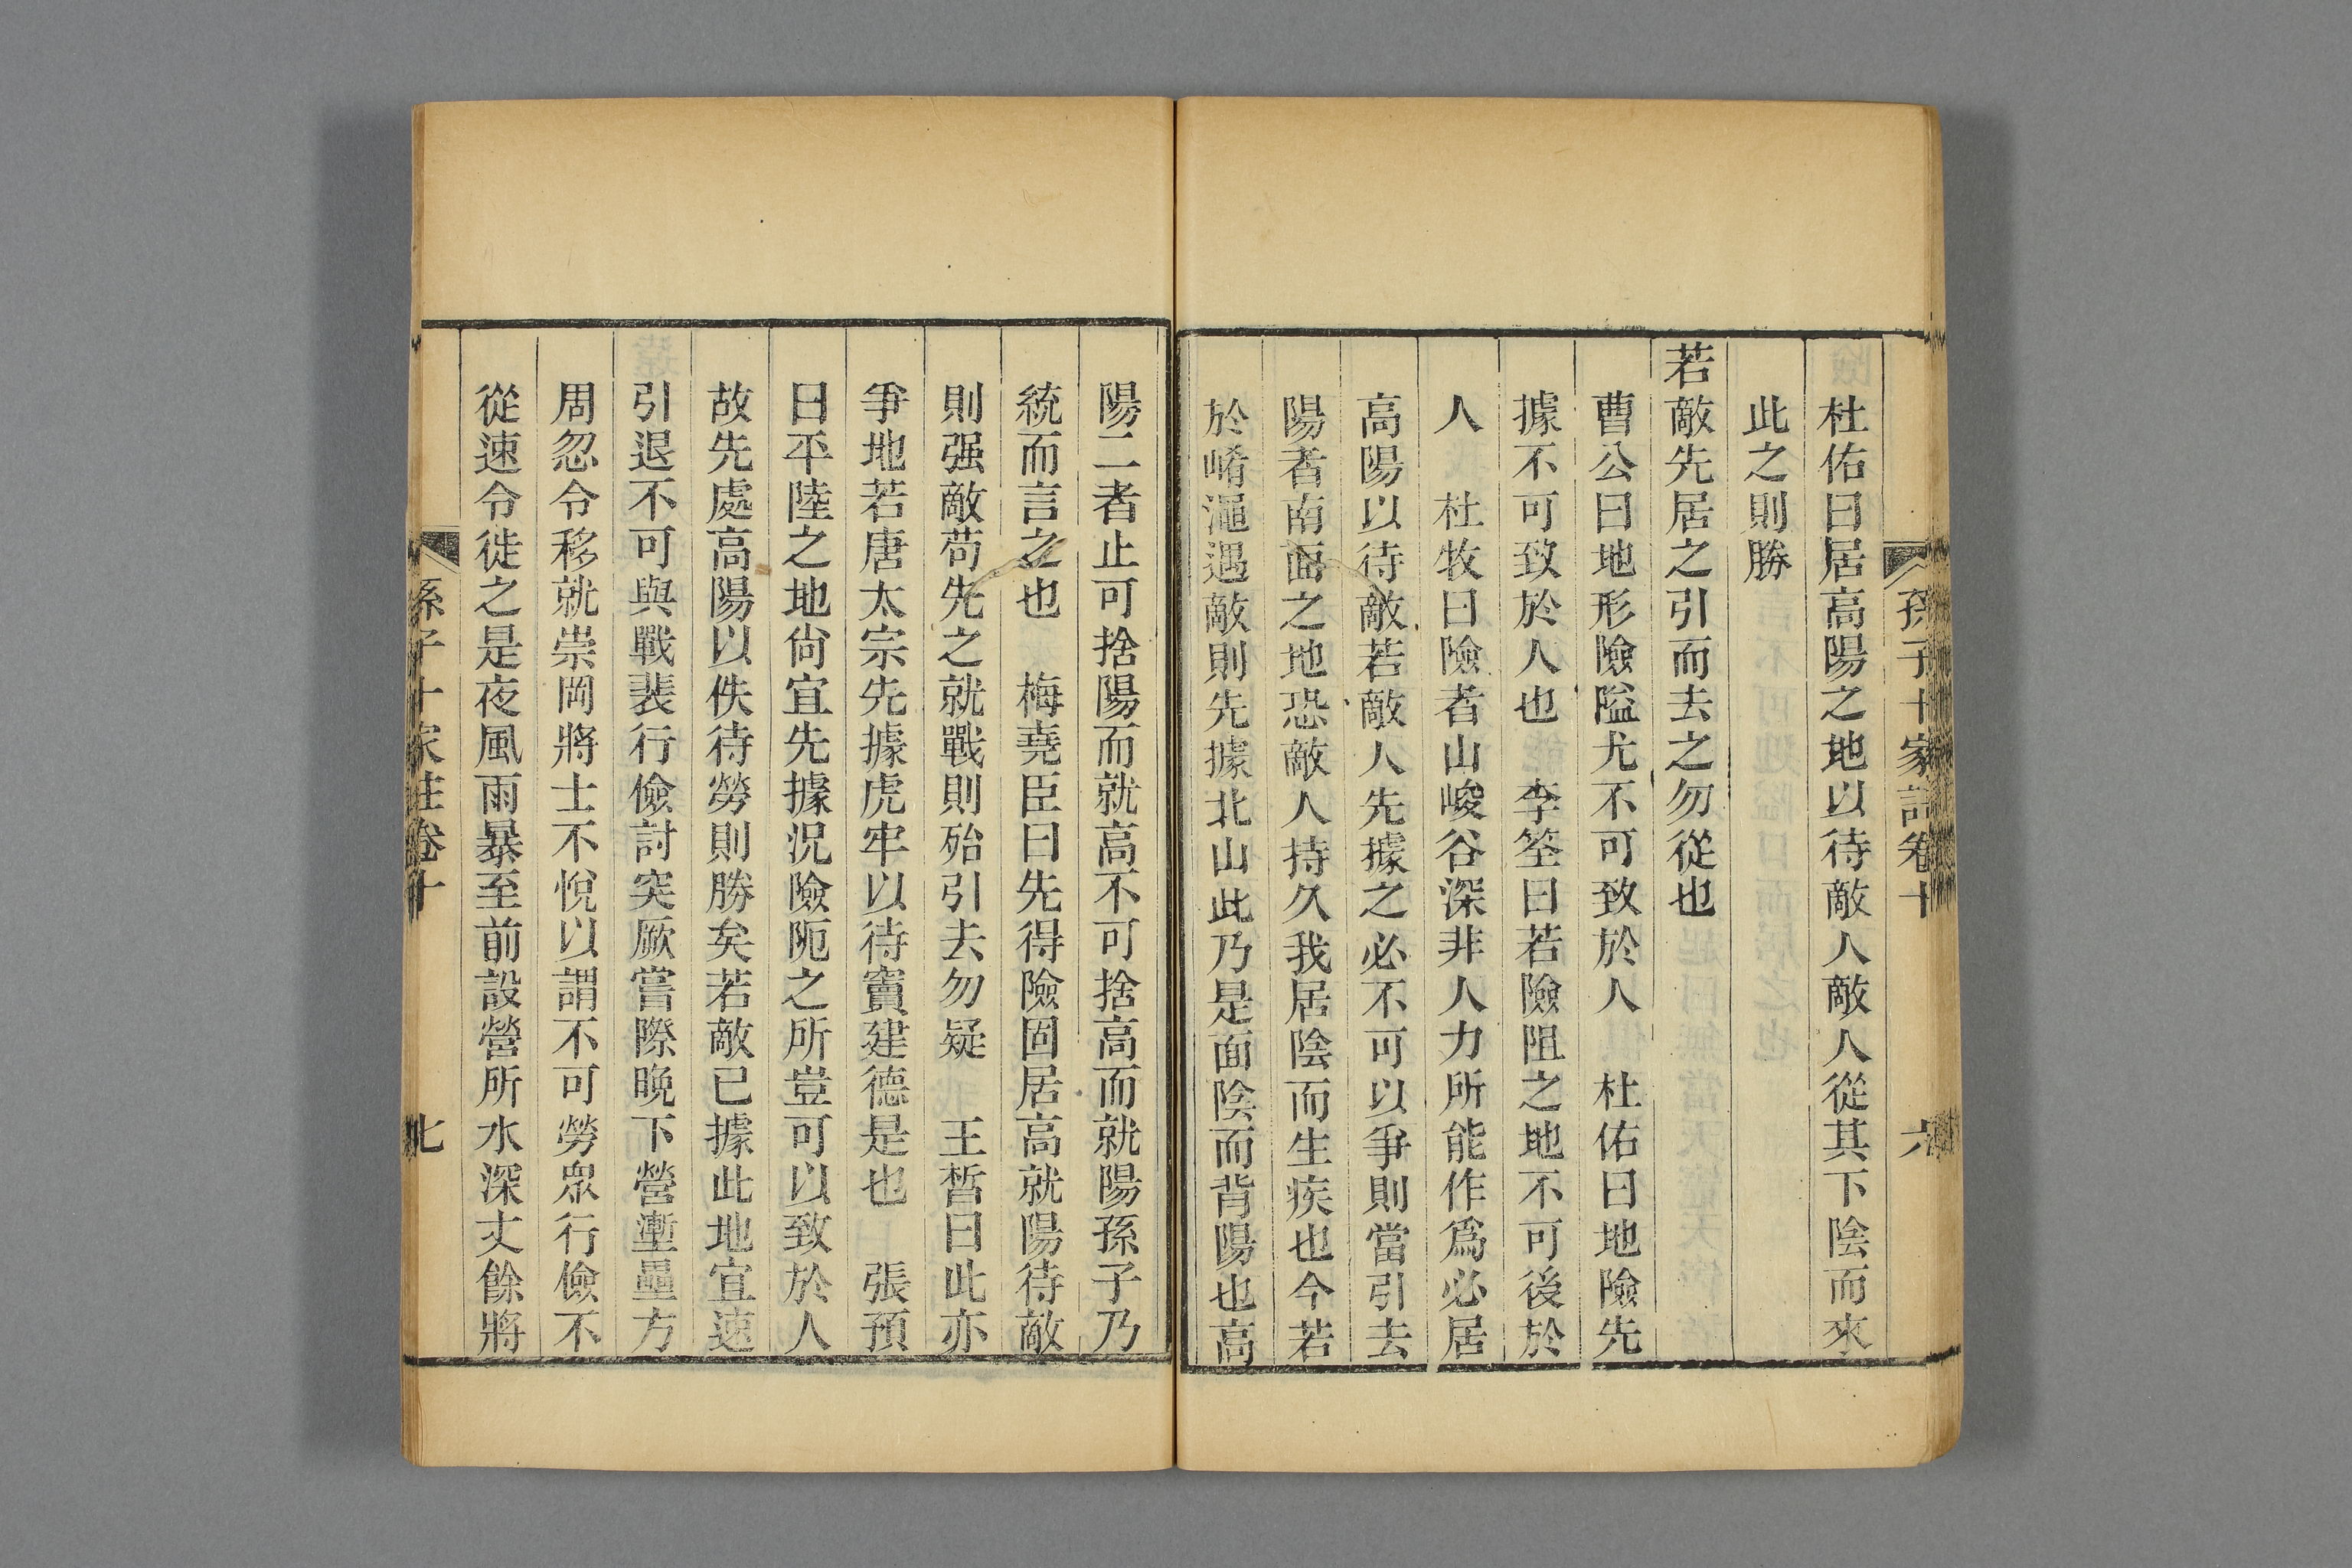 孫子十家註卷十 六
杜佑曰居高陽之地以待敵人敵人從其下陰而來
此之則勝
若敵先居之引而去之勿從也
曹公曰地形險隘尤不可致於人 杜佑曰地險先
據不可致於人也 李筌曰若險阻之地不可後於
人 杜牧曰險者山峻谷深非人力所能作爲必居
高陽以待敵若敵人先據之必不可以爭則當引去
陽者南面之地恐敵人持久我居陰而生疾也今若
於崤澠遇敵則先據北山此乃是面陰而背陽也高
陽二者止可捨陽而就高不可捨高而就陽孫子乃
統而言之也 梅堯臣曰先得險固居高就陽待敵
則强敵苟先之就戰則殆引去勿疑 王晳曰此亦
爭地若唐太宗先據虎牢以待竇建德是也 張預
曰平陸之地尙宜先據況險阨之所豈可以致於人
故先處高陽以佚待勞則勝矣若敵已據此地宜速
引退不可與戰裴行儉討突厥嘗際晚下營塹壘方
周忽令移就崇岡將士不悅以謂不可勞眾行儉不
從速令徙之是夜風雨暴至前設營所水深丈餘將
孫子十家註卷十 七